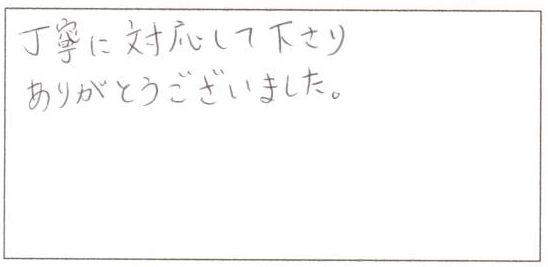 丁寧に対応して下さり
ありがとうございました。